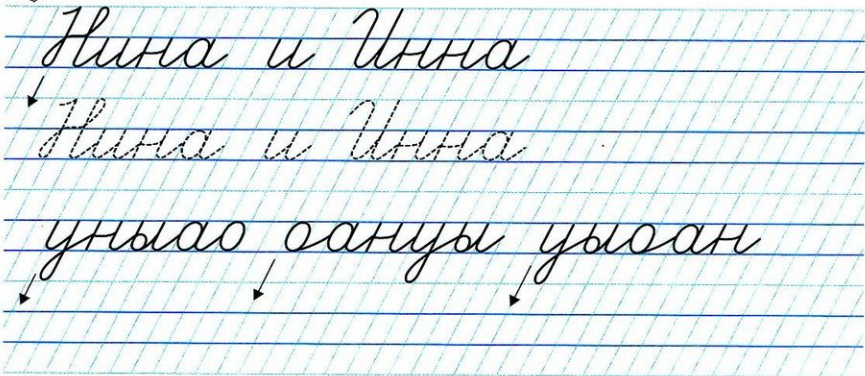 Нина и Инна
Нина и Инна
уныао оануы уыоан